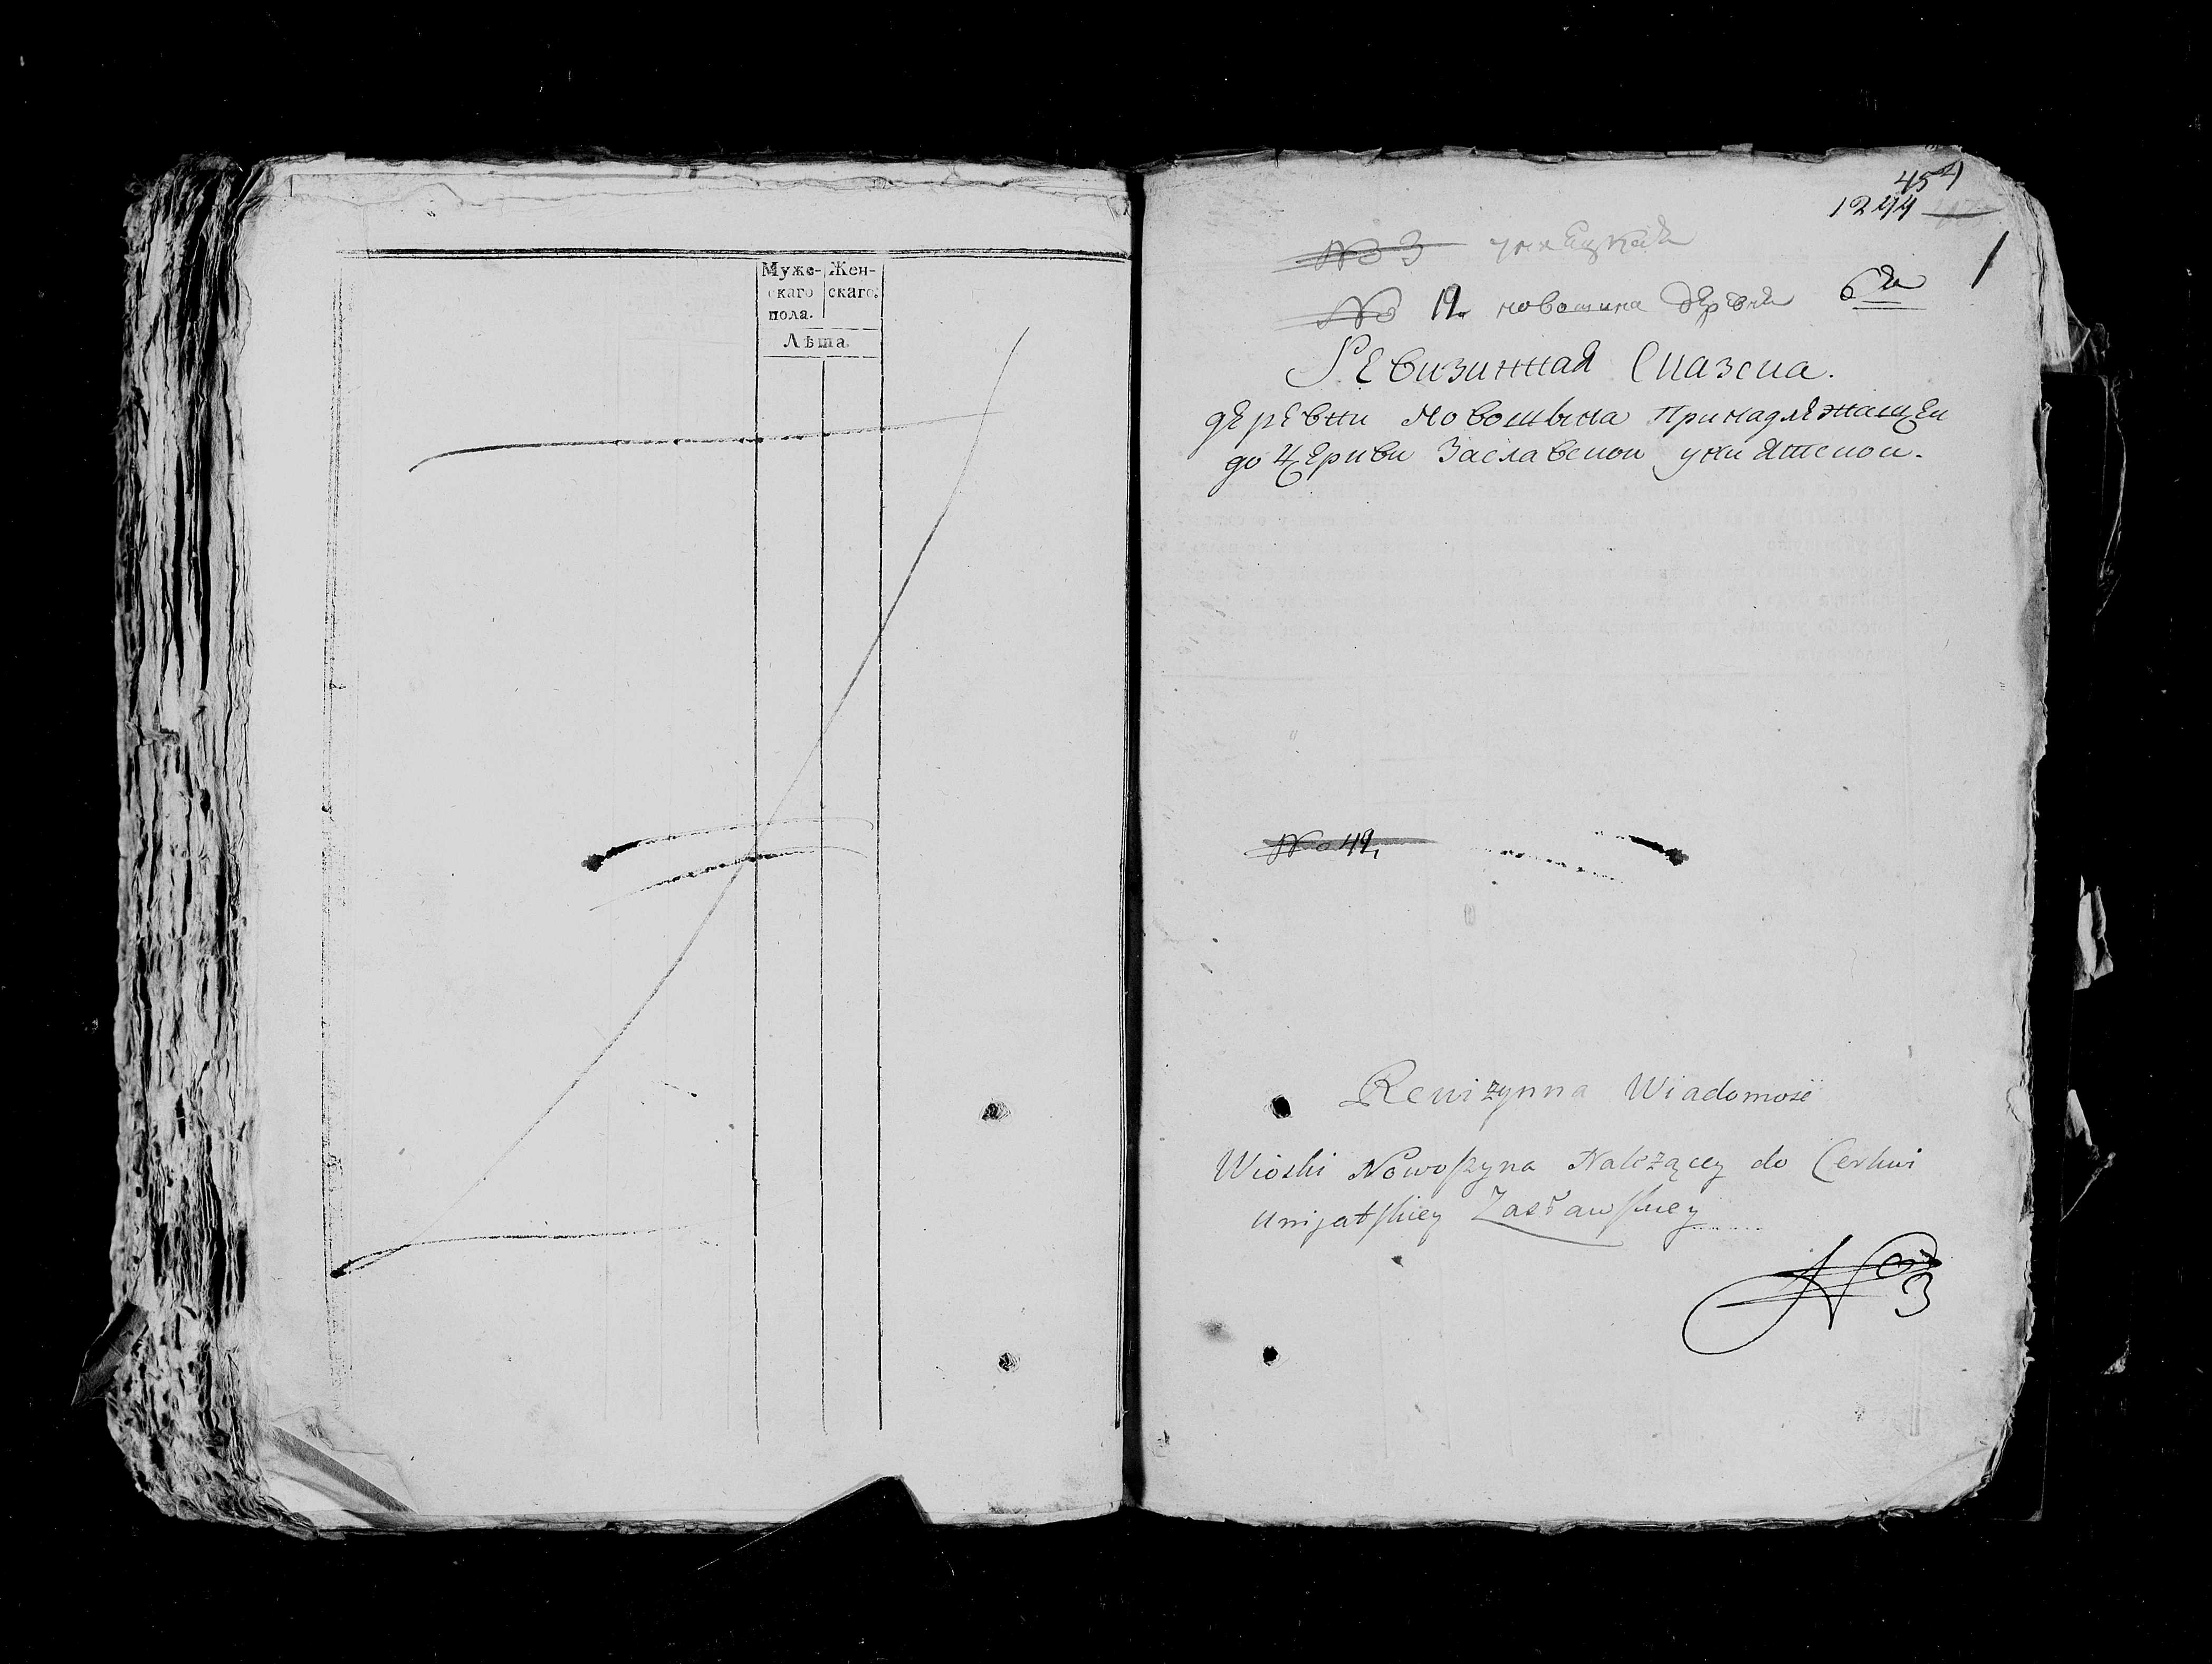 Муже- Жен-
скаго скаго.
пола.
Лѣта
454
1244
1
№ 3
№ 19. новошина дєрєвня 6я
Рєвизинная Сказка.
дєрєвни Новошына Принадлєжащєи
до Цєркви Заславской униятской.
№ 49,
Rewizynna Wiadomość
Wioski Nowoszyna Należącey do Cerkwi
Unijatskiey Zasławskiey
№ 3